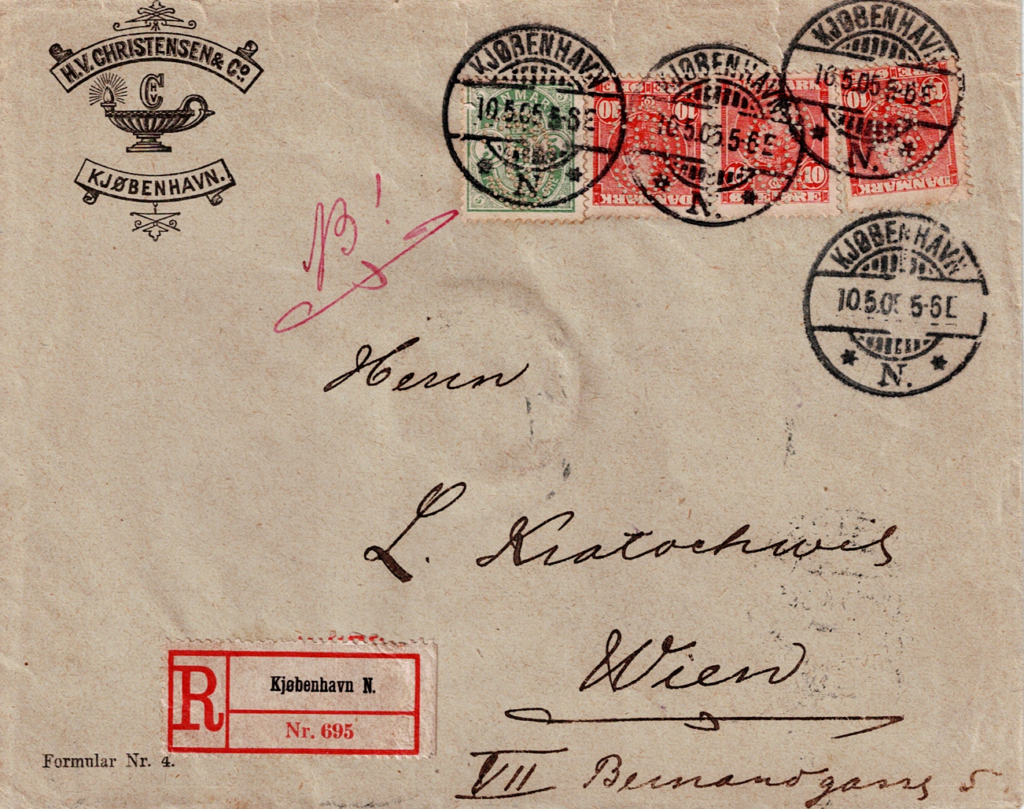 H.V. CHRISTENSEN & Co.
C C
KJØBENHAVN.
KJØBENHAVN
10.5.05 5-6 E
N.
KJØBENHAVN
10.5.05 5-6 E
N.
KJØBENHAVN
10.5.05 5-6 E
N.
5
10
10
DANMARK
10
DANMARK
KJØBENHAVN
10.5.05 5-6 E
N.
Herrn
L. Kratochwil
Wien
VII Bernardgasse 5
R
Kjøbenhavn N.
Nr. 695
Formular Nr. 4.